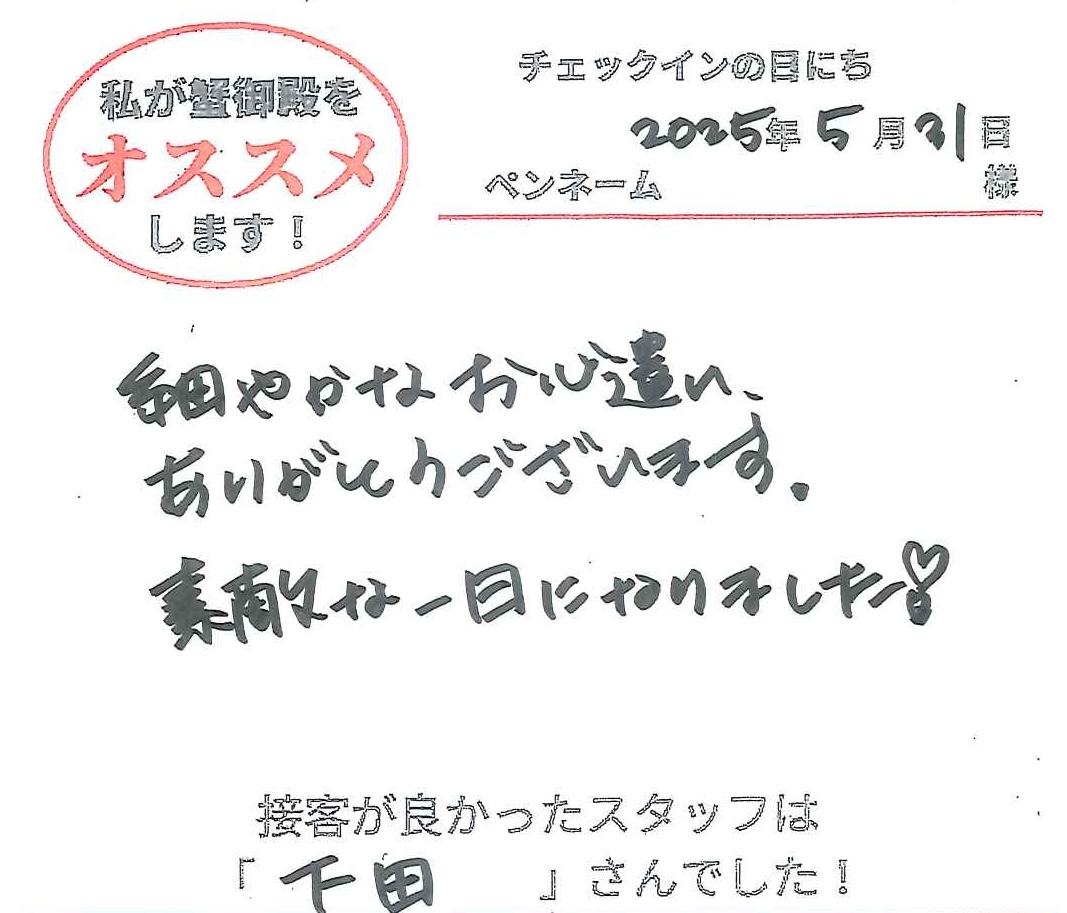 私が蟹御殿を
オススメ
します！
チェックインの日にち
2025年5月31日
ペンネーム 様
細やかなお心遣い、
ありがとうございます。
素敵な一日になりました♡
接客が良かったスタッフは
「下田」さんでした！